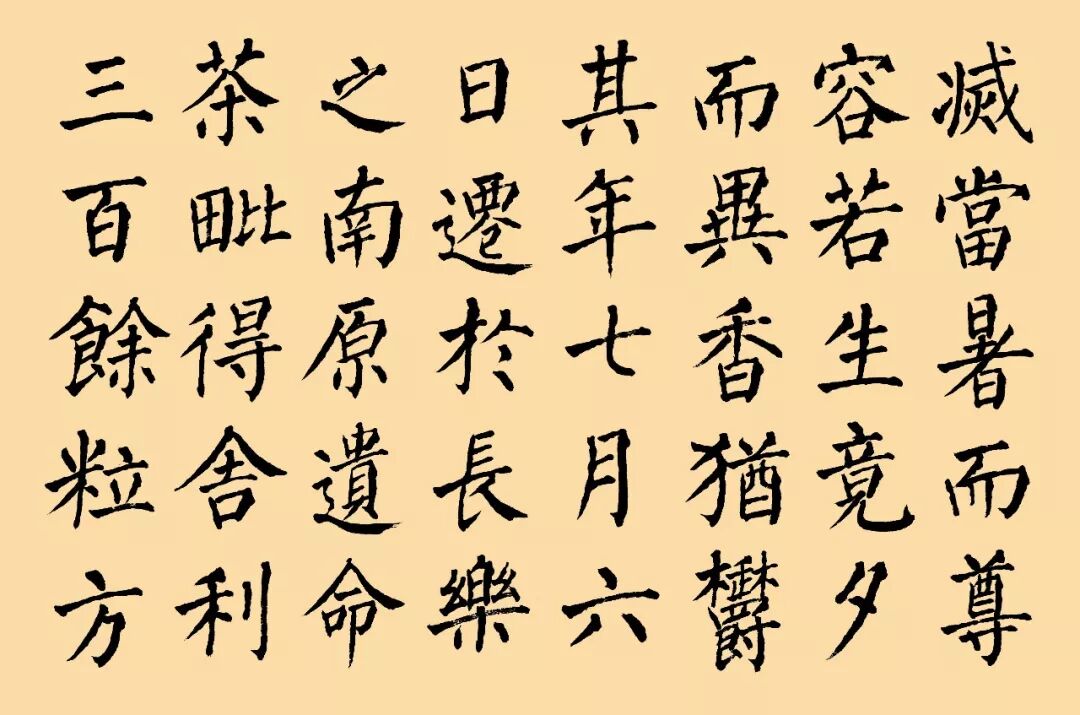 滅當暑而尊
容若生竟夕
而異香猶鬱
其年七月六
日遷於長樂
之南原遺命
茶毗得舍利
三百餘粒方